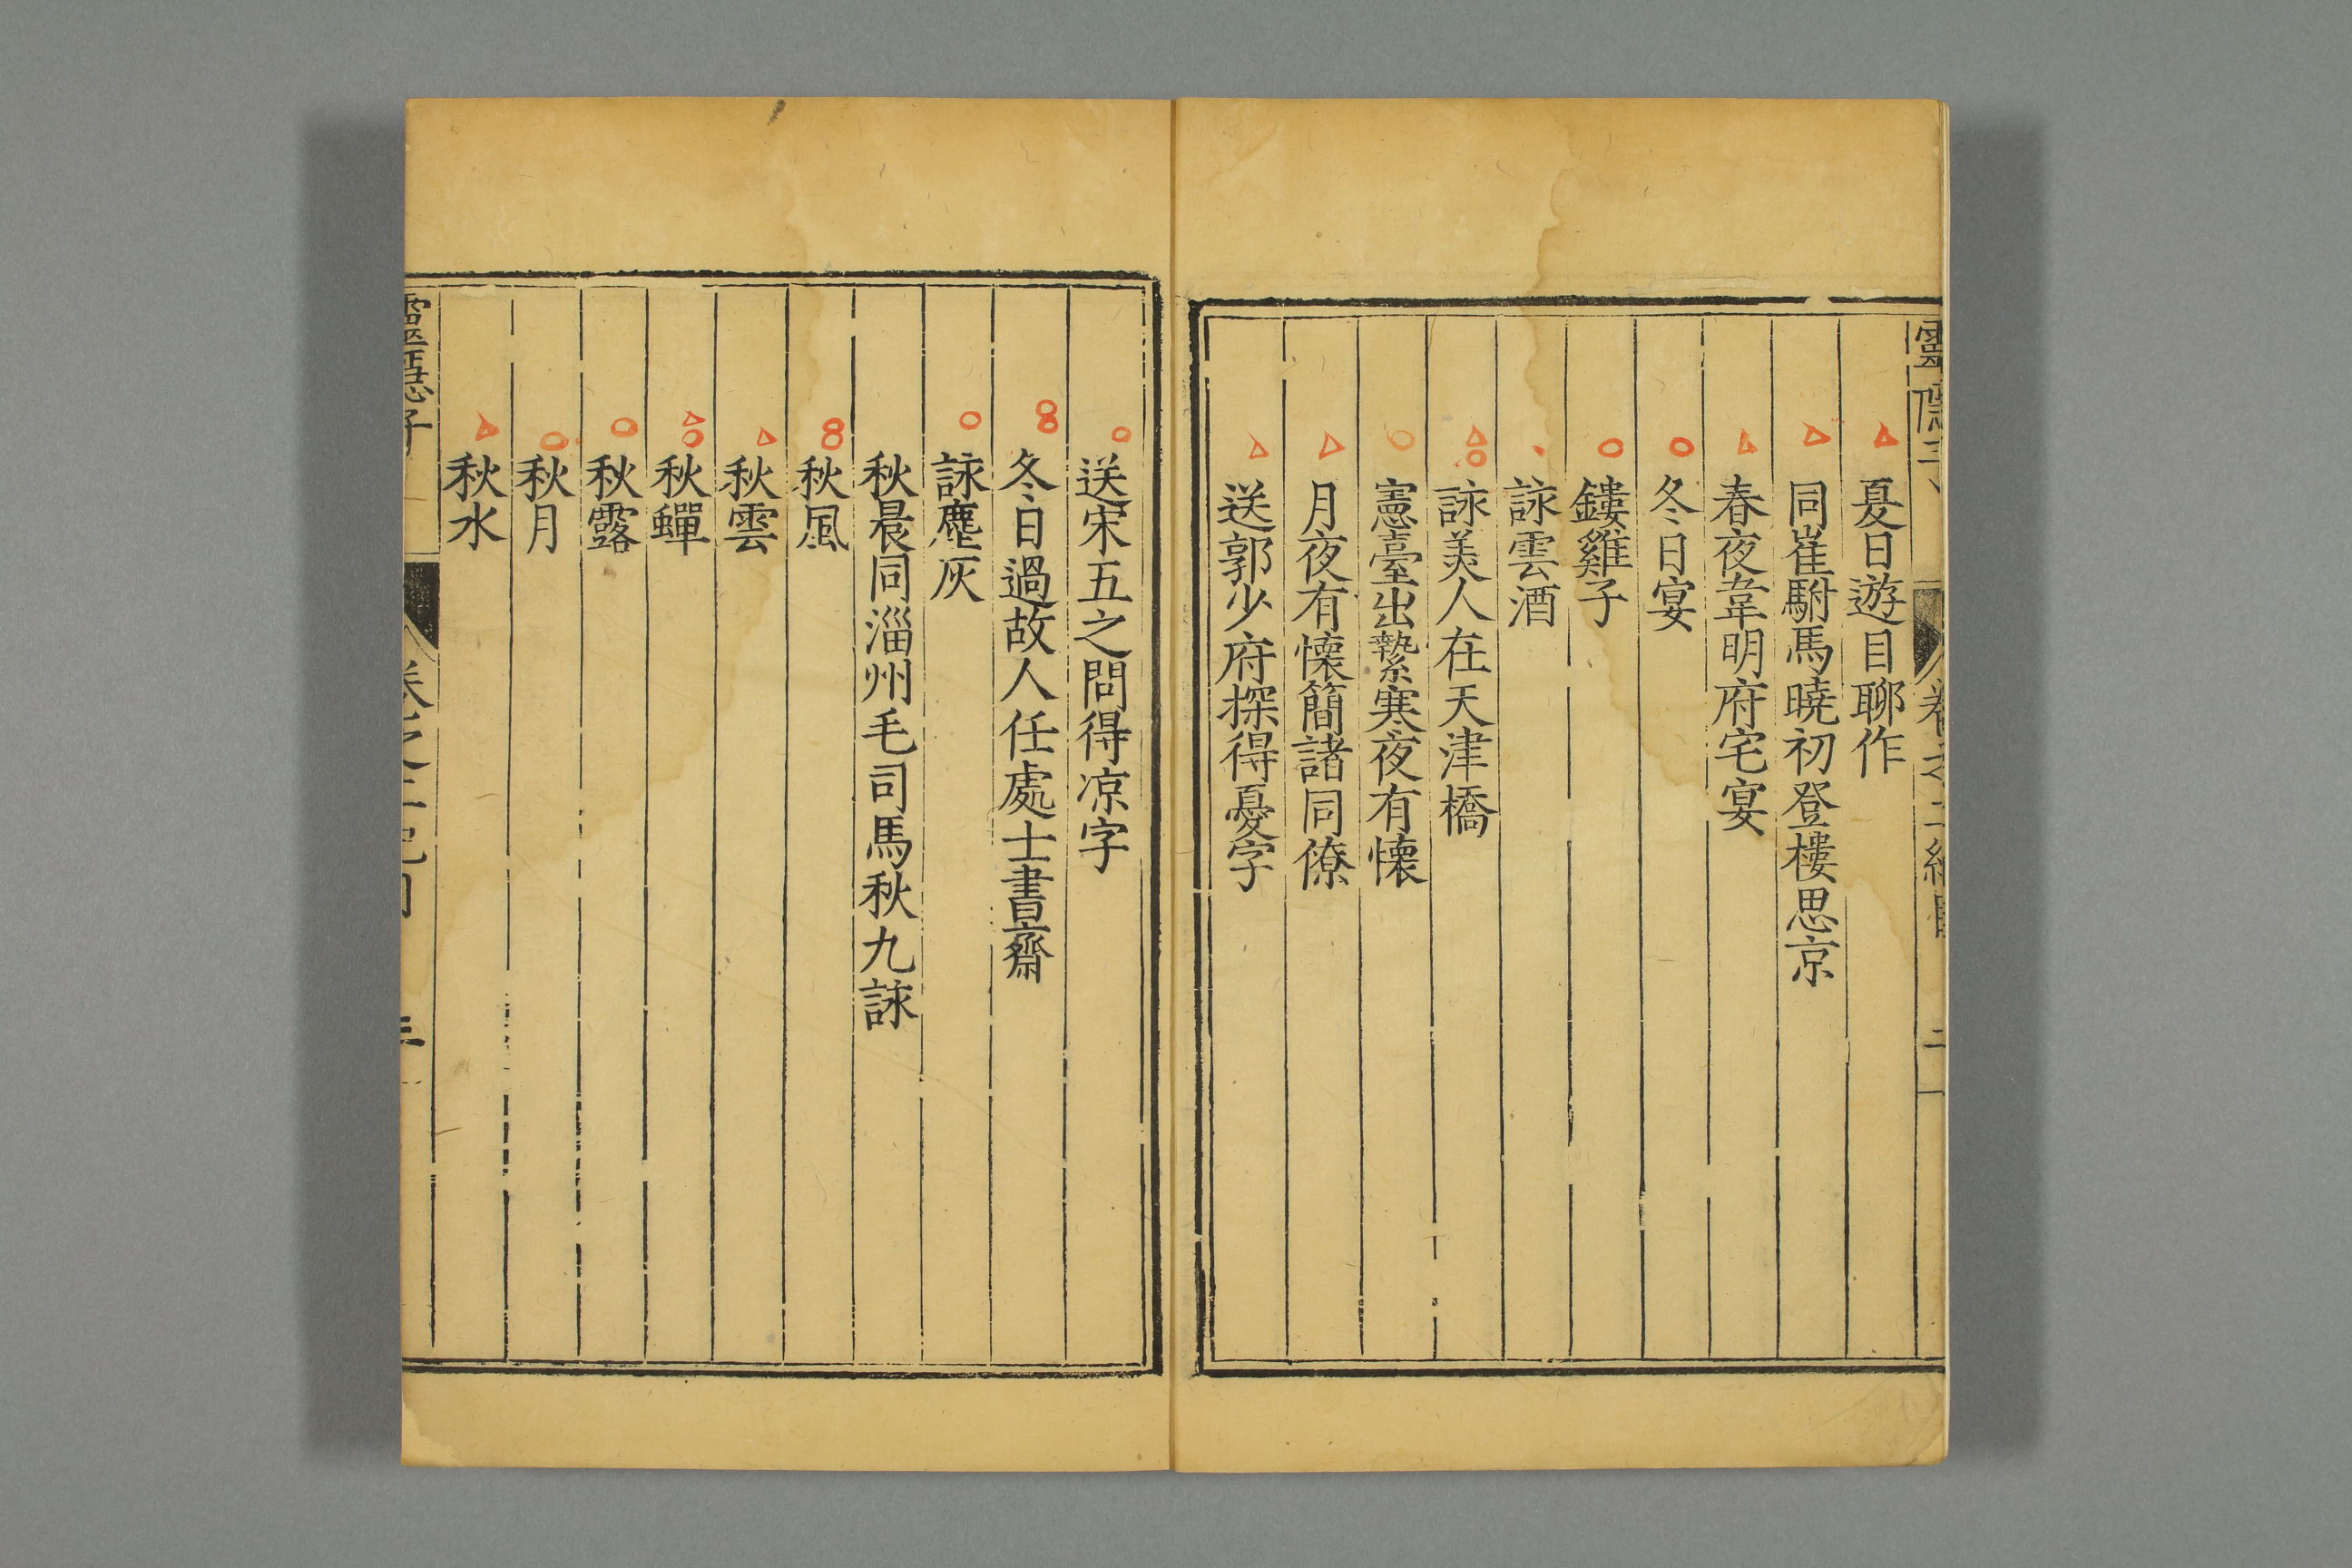 夏日遊目聊作
同崔駙馬曉初登樓思京
春夜韋明府宅宴
冬日宴
鏤雞子
詠雲酒
詠美人在天津橋
憲臺出縶寒夜有懷
月夜有懷簡諸同僚
送郭少府探得憂字
送宋五之問得凉字
冬日過故人任處士書齋
詠塵灰
秋晨同淄州毛司馬秋九詠
秋風
秋雲
秋蟬
秋露
秋月
秋水